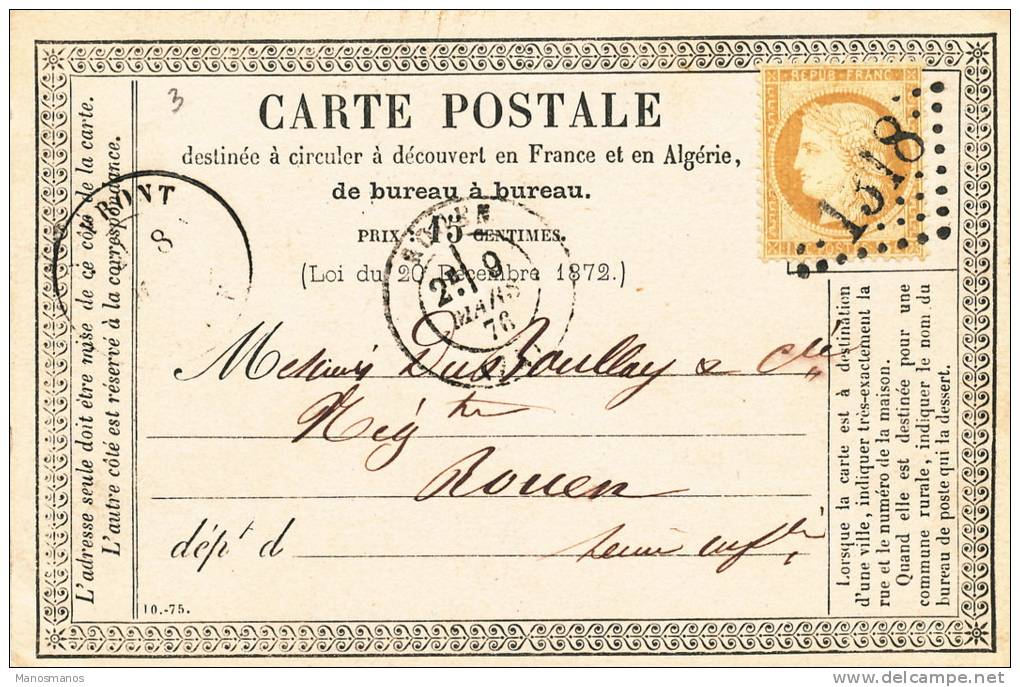 3
CARTE POSTALE
destinée à circuler à découvert en France et en Algérie,
de bureau à bureau.
PRIX 15 CENTIMES.
(Loi du 20 Décembre 1872.)
REPUB FRANC
15 POSTES
RONT
8
ROUEN
2E 9
MARS
76
Messieurs & Cie
Négts
Rouen
dépt d Seine infre
L'adresse seule doit être mise de ce côté de la carte.
L'autre côté est réservé à la correspondance.
Lorsque la carte est à destination
d'une ville, indiquer très-exactement la
rue et le numéro de la maison.
Quand elle est destinée pour une
commune rurale, indiquer le nom du
bureau de poste qui la dessert.
10.-75.
Manosmanos
delcampe.net